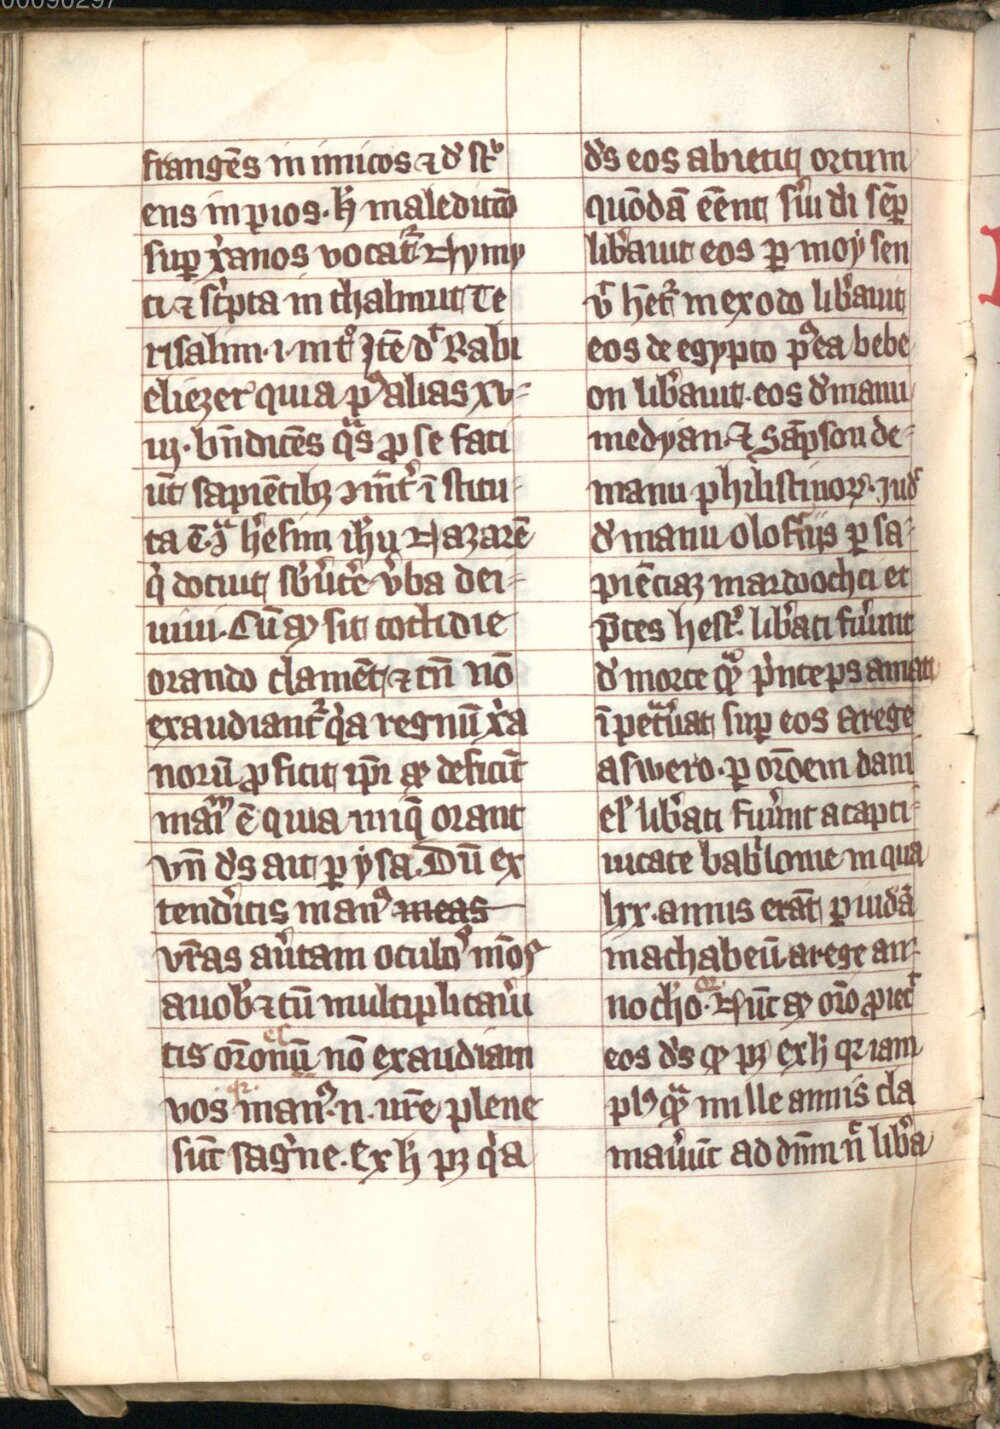 00090297
frangēs in imicos ⁊ d̕ stͬ
ens inpios. h̄ maledictō
suꝑ x̕anos vocat᷑ Nymy
ti ⁊ sc̕pta in thalmut Je
risalim .i. Rabi
eliezer quia pꝰ alias xv-
iij. bn̄dicēs qͣs ꝓ se faci
ūt sapiētibꝫ ī stitu-
ta ē. heͬsim ih̄u Nazarē
q̇ docuit sb̕u̕te̕ v̕ba dei-
uini. Cū sit cottidie
orando clamēt ⁊ tn̄ nō
exaudiant᷑ q̇a regnū x̕a
norū ꝓficit ip̄i deficiūt
ē quia iniq̄ orant
vn̄ d̕s ait ꝑ ysa. Dū ex
tend̕itis manꝰ meas
vr̄as au̕tam oculoˢ mōs
auob̕ ⁊ cū multiplicau̕i
tis or̄onū nō exaudiam
vos manꝰ .n. ur̄e plene
sūt sag̕ne. Ex h̄ pꝫ q̇a
d̕s eos abiecit ortum
quōdā eēnt sui di sēꝑ
lib̕auit eos ꝑ moysen
v̕ h̄et᷑ in exodo lib̕auit
eos de egypto pͦea bebe
on lib̕auit eos d̕ manu
medyan. ⁊ Sāpson de-
manu philistinoꝝ. Jud̕
d̕ manu olof̕nis ꝑ sa-
piēciaꝫ mardoochei et
p̄ces hest̕. lib̕ati fu̕unt
d̕ morte p̕nceps aman
īpet̕uat suꝑ eos arege
aswero. ꝑ or̄oem dani
el̕ lib̕ati fu̕unt a capti-
uitate bab̕lonie in qua
lxx. annis erāt ꝑ iudā
machabeū arege an-
nocho̕. Nūc
eos d̕s pꝫ ex h̄ iam
plꝰ mille annis cla
mau̕ūt ad dn̄m n̄ lib̕a